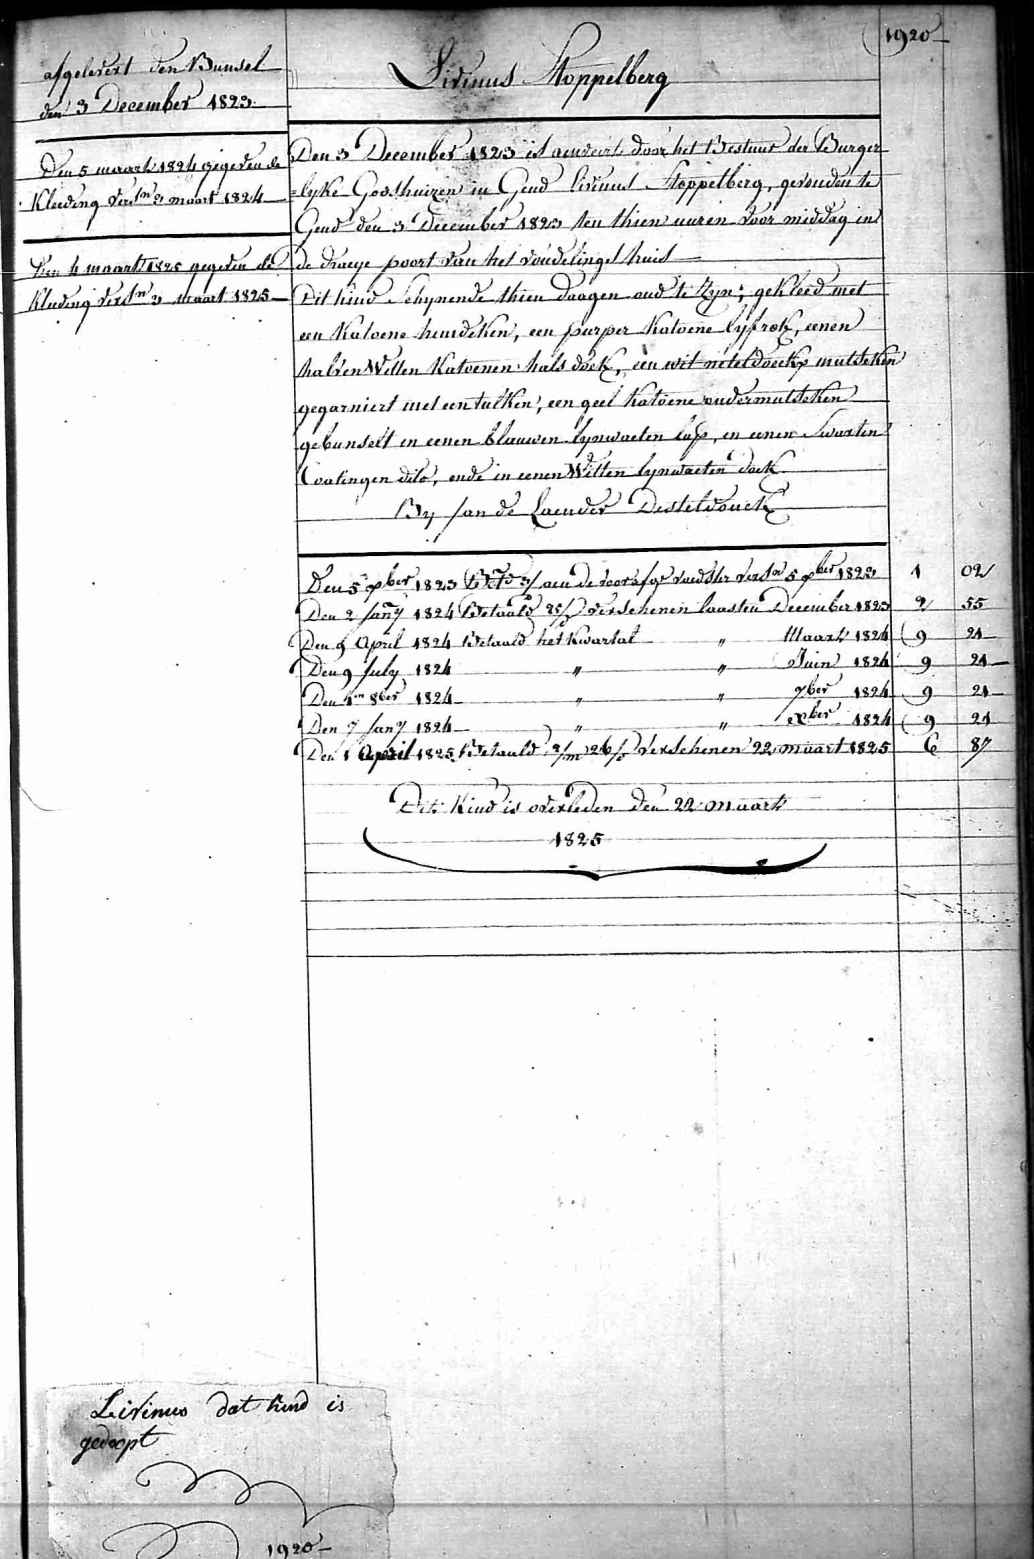 1920
Livinus Stoppelberg
afgelevert den Bunsel
den 3 December 1823
Den 5 maart 1824 gegeven de
Kleeding verst.n 3 maart 1824
Den 4 maart 1825 gegeven de
Kleeding verst.n 3 maart 1825
Den 3 December 1823 is aenveirt door het Bestuur der Burger
=lyke Godshuizen in Gend livinus Stoppelberg, gevonden te
Gend den 3 December 1823 ten thien uuren voor middag in
de draeye poort van het vondelinge huis
Dit kind Schynende thien daagen oud te Zyn; gekleed met
een Katoene hemdeken, een purper Katoene lyfrok, eenen
halven Witten Katoenen hals doek, een wit neteldoeck mutseken
gegarniert met een tulken, een geel katoene ondermutseken
gebunselt in eenen blauwen lynwaeten lap, en eenen Swarten
Coatingen dito, ende in eenen Witten lynwaeten doek
By Jan de Laender Desteldonck
Den 5 xber 1823 aen de voorsge voedster verst 5 xber 1823 1 02
Den 2 Jany 1824 Betaald 25/ verschenen laasten December 1823 2 55
Den 9 April 1824 Betaald het kwartal " Maart 1824 9 21
Den 9 July 1824 " " Juin 1824 9 21
Den 8ber 1824 " " 7ber 1824 9 21
Den 7 Jany 1824 " " xber 1824 9 21
Den 1 April 1825 Betaald 2/m 26/ verschenen 22 maart 1825 6 87
Dit Kind is overleden den 22 maart
1825
Livinus dat kind is
gedoopt
1920